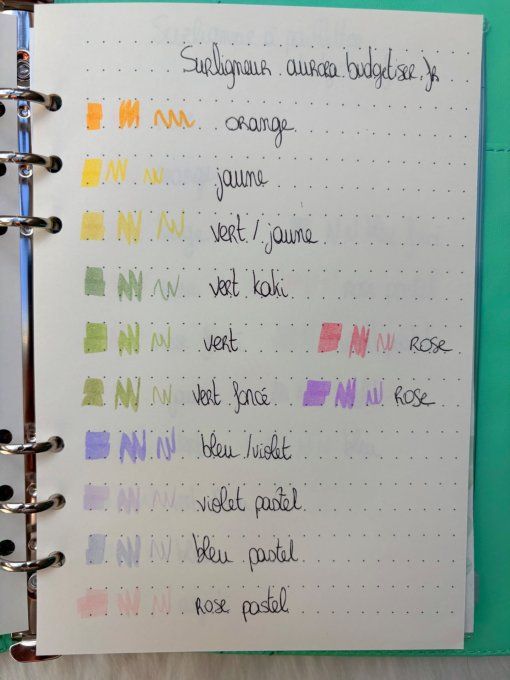 Surligneur aurea.budgetiser.fr
orange
jaune
vert / jaune
vert kaki
vert ROSE
vert foncé ROSE
bleu /violet
violet pastel
bleu pastel
ROSE pastel